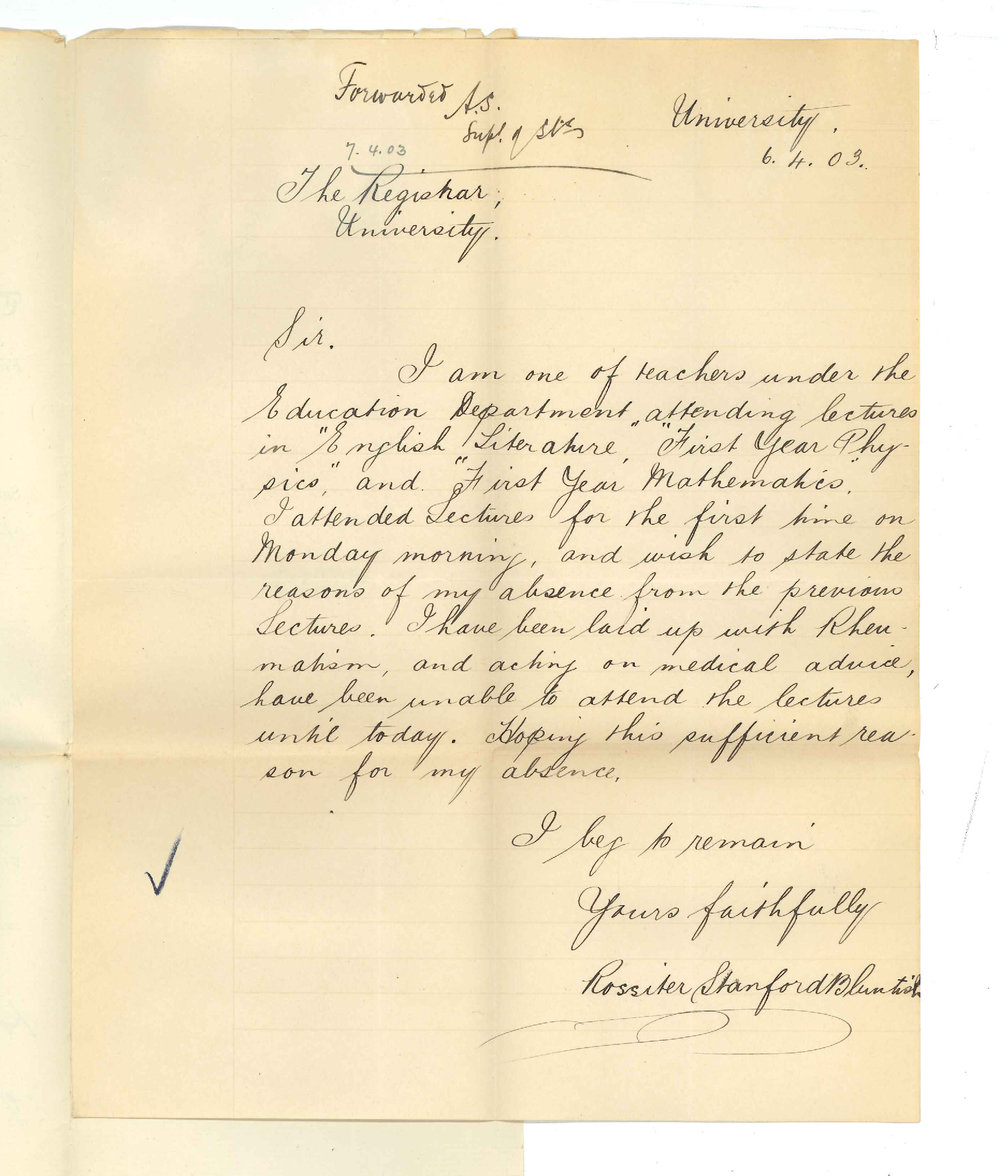 Forwarded
A.S.
Supt. of Sts
7. 4. 03
University.
6. 4. 03.
The Registrar,
University.
Sir.
I am one of teachers under the
Education Department, attending lectures
in "English Literature," "First Year Phy-
sics," and "First Year Mathematics."
I attended Lectures for the first time on
Monday morning, and wish to state the
reasons of my absence from the previous
Lectures. I have been laid up with Rheu-
matism, and acting on medical advice,
have been unable to attend the lectures
until today. Hoping this sufficient rea-
son for my absence.
I beg to remain
Yours faithfully
Rossiter Stanford